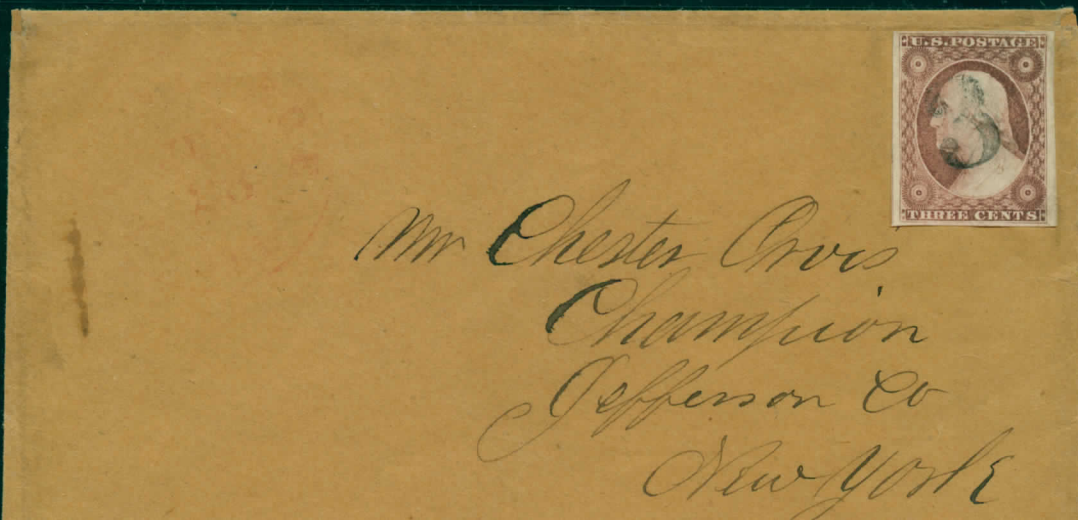 U.S. POSTAGE
3
THREE CENTS
Mr Chester Orvis
Champion
Jefferson Co
New York